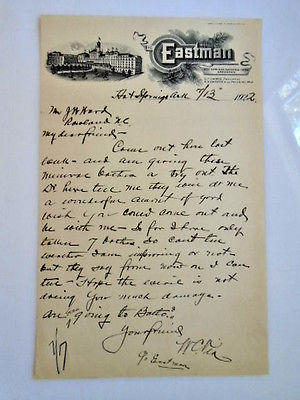 Eastman
Hot Springs Ark 7/13 1902
Mr J W Ward
Rowland N.C.
My dear friend;
Come out here last
week - and am giving these
mineral baths a try out the
Dr here tell me they will do me
a wonderful amount of good
wish you could come out and
be with me - So far I have only
taken 7 baths So cant tell
weather I am improving or not
but they say from now on I can
tell - Hope the weevil is not
doing you much damage.
Are you going to Balto?
Your friend
W C
% Eastman